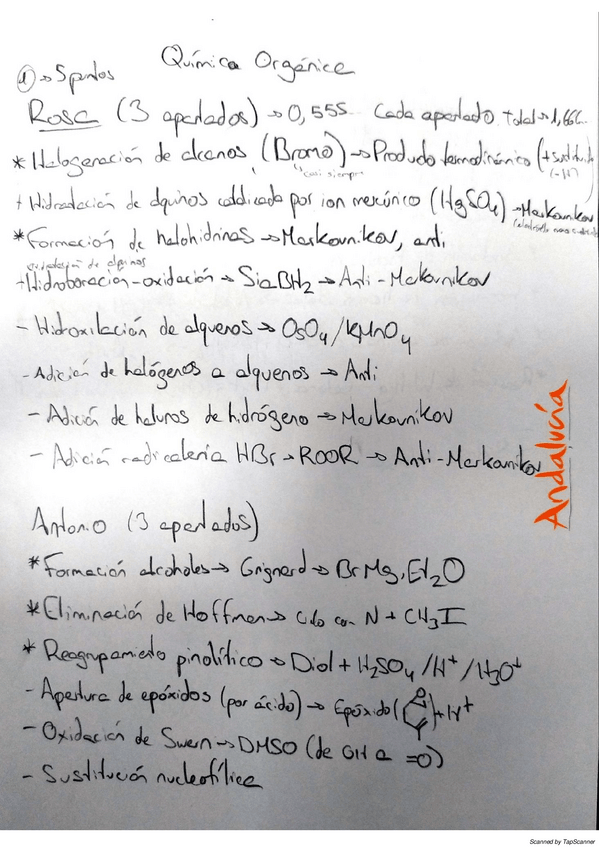 Química Orgánica
① → 5 puntos
Rosa (3 apartados) → 0,555 Cada apartado total → 1,666
* Halogenación de alcanos (Bromo) → Producto termodinámico (+ sustituido
"casi siempre" (-H)
+ Hidratación de alquinos catalizada por ion mercúrico (HgSO4) → Markovnikov
* Formación de halohidrinas → Markovnikov, anti
hidratación de alquinos
+ Hidroboración-oxidación → Sia2BH2 → Anti-Markovnikov
- Hidroxilación de alquenos → OsO4/KMnO4
- Adición de halógenos a alquenos → Anti
- Adición de haluros de hidrógeno → Markovnikov
- Adición radicalaria HBr → ROOR → Anti-Markovnikov
Andalucía
Antonio (3 apartados)
* Formación alcoholes → Grignard → BrMg, Et2O
* Eliminación de Hoffman → Ciclo con N + CH3I
* Reagrupamiento pinolítico → Diol + H2SO4/H+/H3O+
- Apertura de epóxidos (por ácido) → Epóxido ( O ) + H+
- Oxidación de Swern → DMSO (de OH a =O)
- Sustitución nucleofílica
Scanned by TapScanner